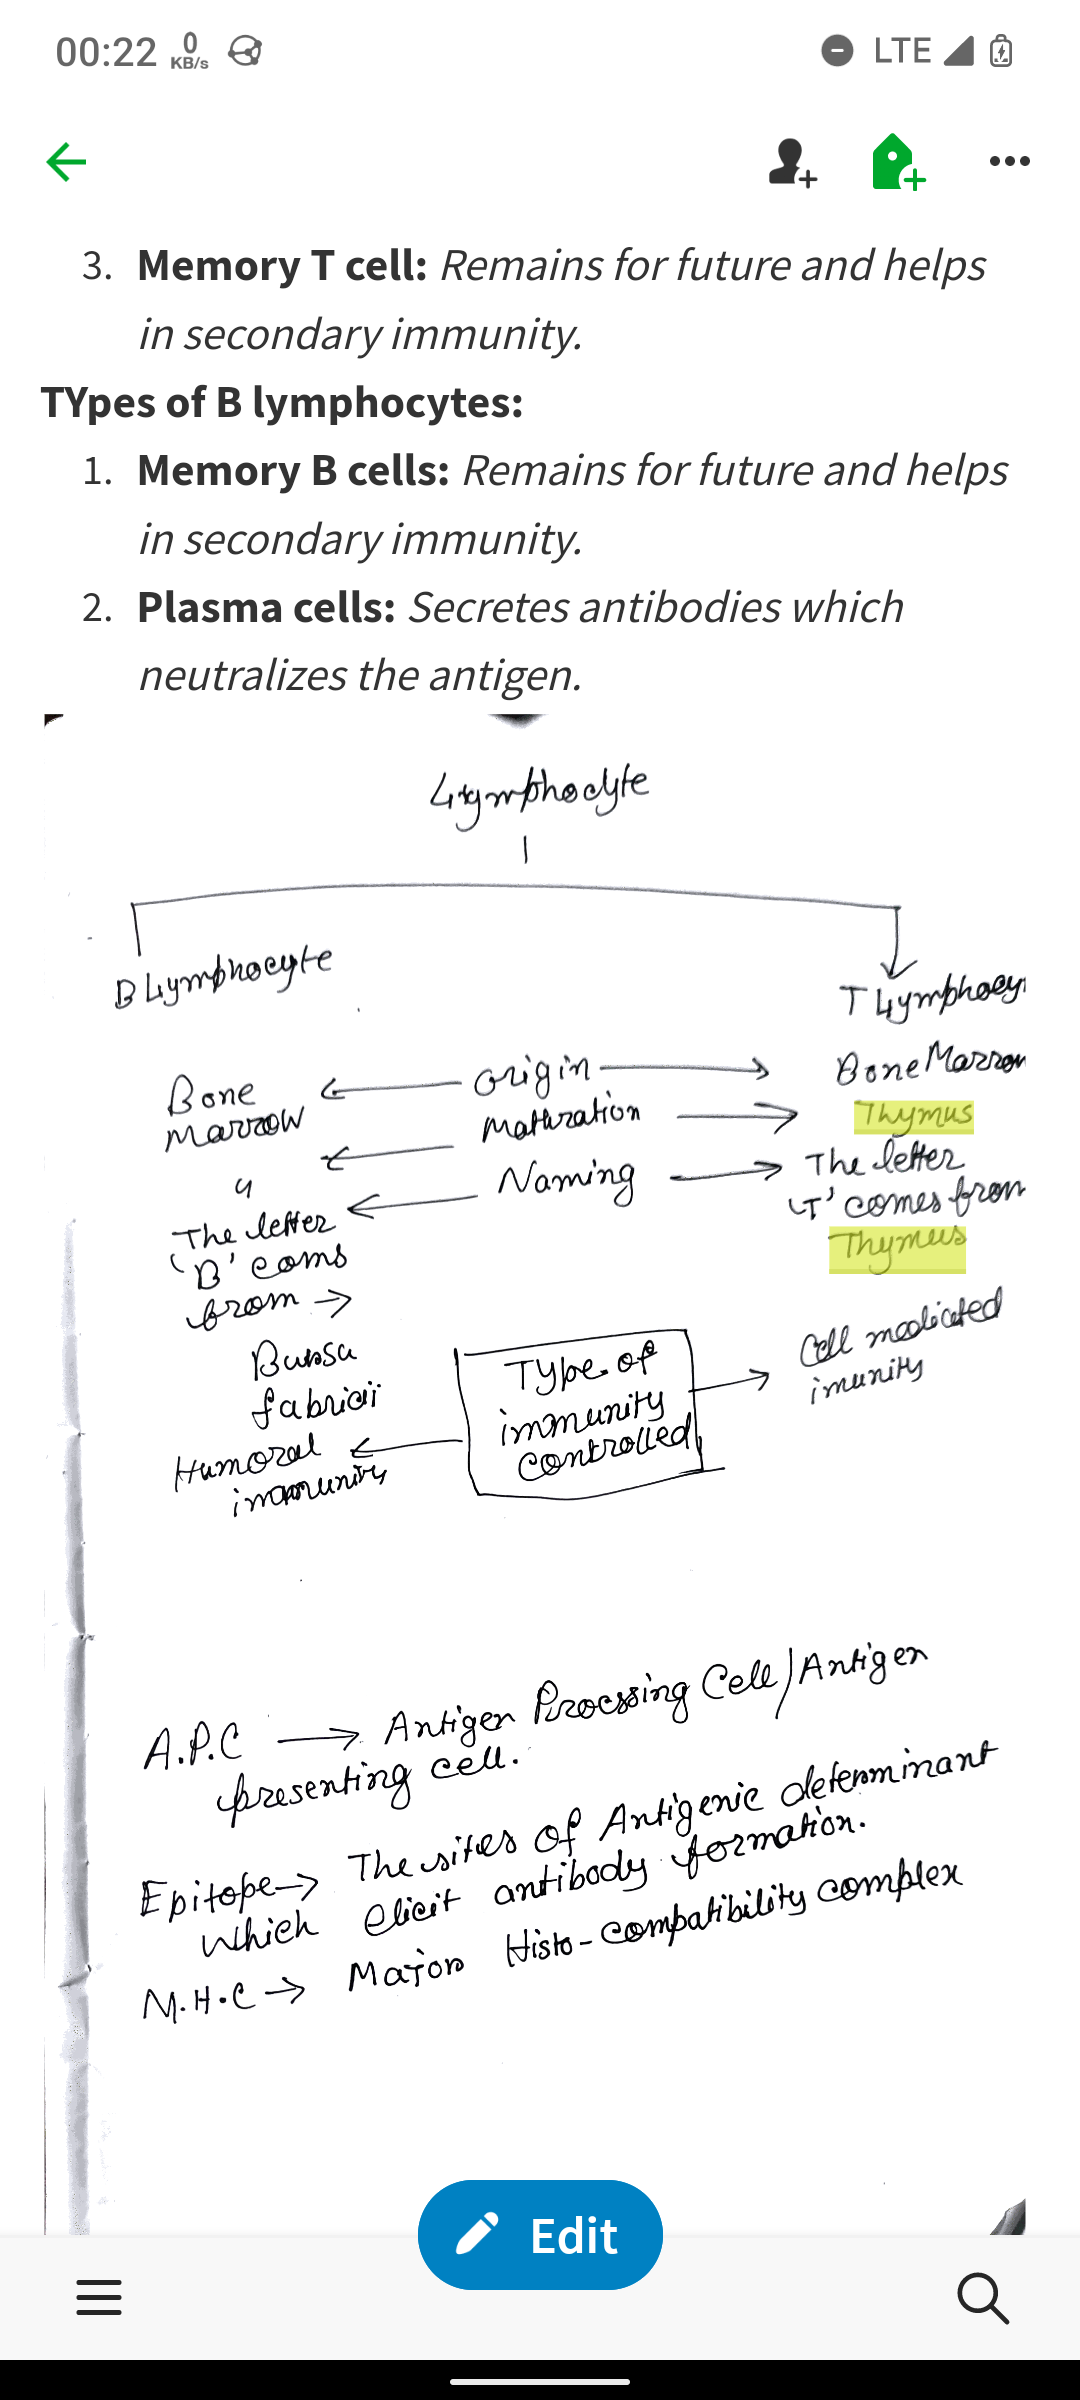 00:22 0 KB/s LTE
3. Memory T cell: Remains for future and helps
in secondary immunity.
TYpes of B lymphocytes:
1. Memory B cells: Remains for future and helps
in secondary immunity.
2. Plasma cells: Secretes antibodies which
neutralizes the antigen.
Lymphocyte
B Lymphocyte
T Lymphocy
Bone Marrow
origin
Bone Marrow
Maturation
Thymus
"
Naming
The letter 'B' coms from →
The letter 'T' comes from
Thymus
Bursa
fabricii
Type of
immunity
controlled
Cell mediated
imunity
Humoral
immunity
A.P.C → Antigen Processing Cell/Antigen
presenting cell.
Epitope → The sites of Antigenic determinant
which elicit antibody formation.
M.H.C → Major Histo-compatibility complex
Edit